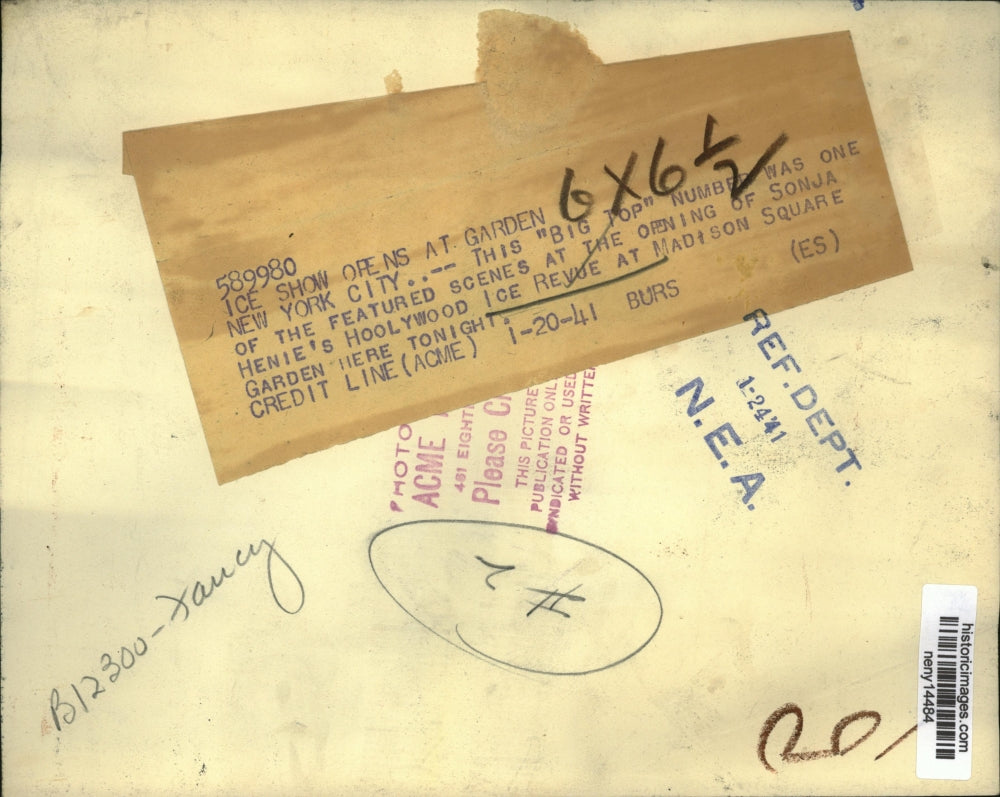 589980
ICE SHOW OPENS AT GARDEN
NEW YORK CITY..-- THIS "BIG TOP" NUMBER WAS ONE
OF THE FEATURED SCENES AT THE OPENING OF SONJA
HENIE'S HOOLYWOOD ICE REVUE AT MADISON SQUARE
GARDEN HERE TONIGHT.
CREDIT LINE (ACME) 1-20-41 BURS (ES)
6 X 6 1/2
PHOTO
ACME
461 EIGHT
Please C
THIS PICTURE
PUBLICATION ONL
SYNDICATED OR USED
WITHOUT WRITTE
REF. DEPT.
1-24 41
N. E. A.
B12300-
historicimages.com
neny14484